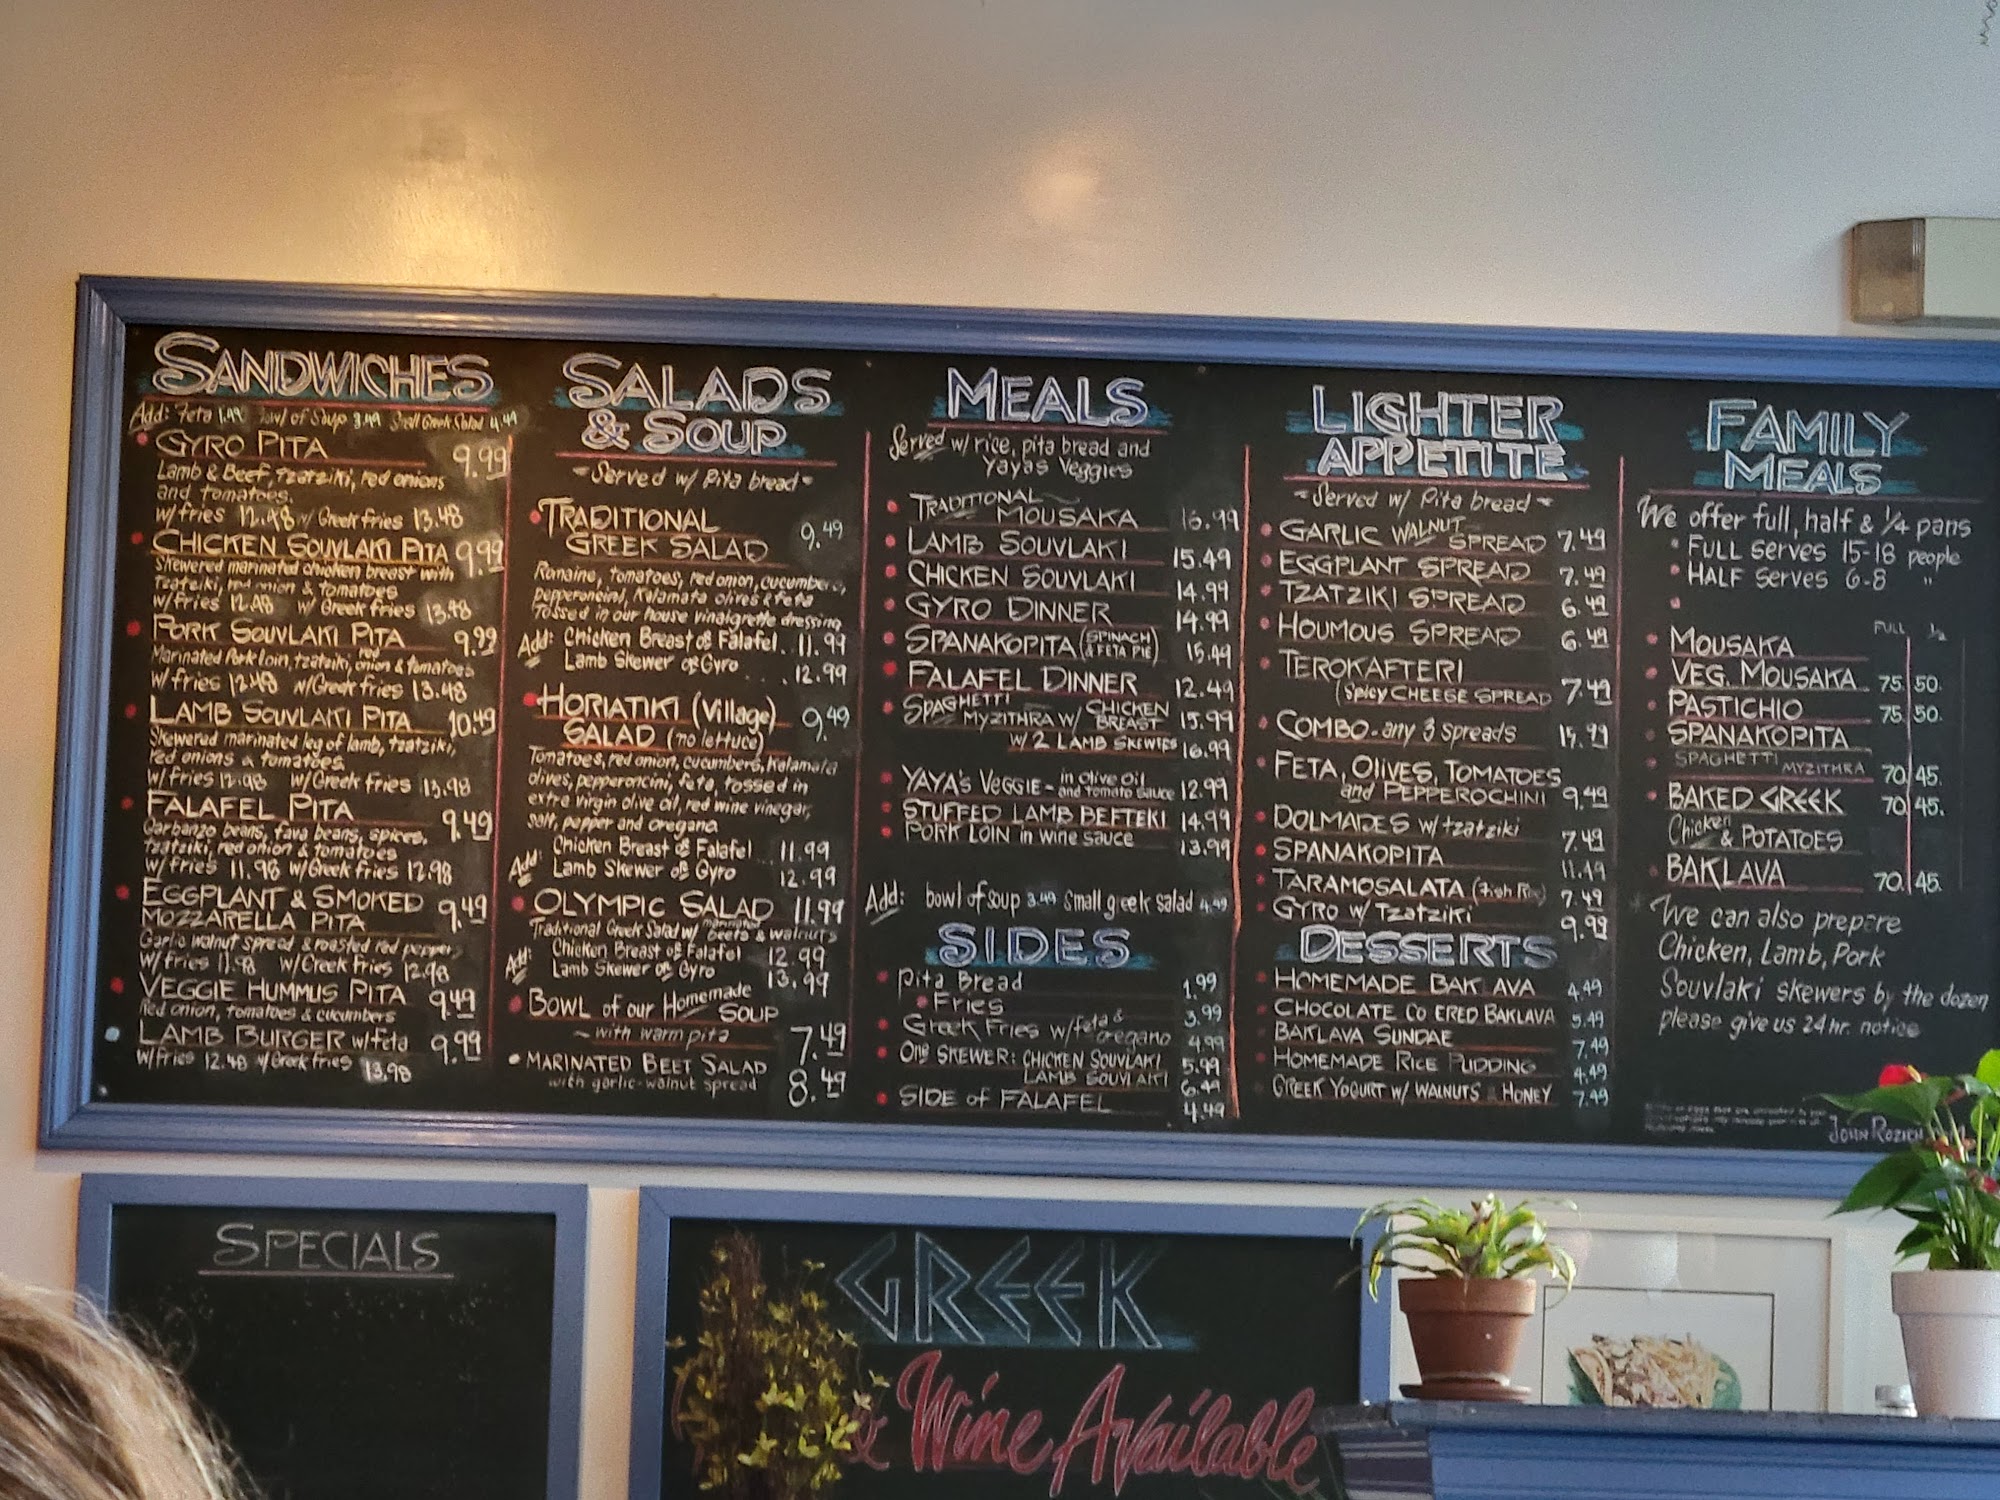 SANDWICHES
Add: Feta 1.49 Bowl of Soup 3.49 Small Greek Salad 4.49
GYRO PITA 9.99
Lamb & Beef, tzatziki, red onions
and tomatoes.
w/fries 12.48 w/ Greek fries 13.48
CHICKEN SOUVLAKI PITA 9.99
Skewered marinated chicken breast with
tzatziki, red onion & tomatoes
w/fries 12.48 w/ Greek fries 13.48
PORK SOUVLAKI PITA 9.99
Marinated Pork loin, tzatziki, red onion & tomatoes
w/fries 12.48 w/Greek fries 13.48
LAMB SOUVLAKI PITA 10.49
Skewered marinated leg of lamb, tzatziki,
red onions & tomatoes.
w/fries 12.98 w/Greek fries 13.98
FALAFEL PITA 9.49
Garbanzo beans, fava beans, spices,
tzatziki, red onion & tomatoes
w/fries 11.98 w/Greek fries 12.98
EGGPLANT & SMOKED
MOZZARELLA PITA 9.49
Garlic walnut spread & roasted red peppers
w/fries 11.98 w/Greek fries 12.98
VEGGIE HUMMUS PITA 9.49
Red onion, tomatoes & cucumbers
LAMB BURGER w/feta 9.99
w/fries 12.48 w/ Greek fries 13.98
SALADS
& SOUP
~Served w/ Pita bread~
TRADITIONAL
GREEK SALAD 9.49
Romaine, tomatoes, red onion, cucumbers,
pepperoncini, Kalamata olives & feta
Tossed in our house vinaigrette dressing
Add: Chicken Breast or Falafel . 11.99
Lamb Skewer or Gyro . . . 12.99
HORIATIKI (Village)
SALAD (no lettuce) 9.49
Tomatoes, red onion, cucumbers, Kalamata
olives, pepperoncini, feta, tossed in
extra virgin olive oil, red wine vinegar,
salt, pepper and oregano.
Add: Chicken Breast or Falafel ... 11.99
Lamb Skewer or Gyro 12.99
OLYMPIC SALAD 11.99
Traditional Greek Salad w/ marinated beets & walnuts
Add: Chicken Breast or Falafel 12.99
Lamb Skewer or Gyro 13.99
BOWL of our Homemade
SOUP
~with warm pita 7.49
MARINATED BEET SALAD
with garlic-walnut spread 8.49
MEALS
Served w/ rice, pita bread and
yayas Veggies
TRADITIONAL
MOUSAKA 16.99
LAMB SOUVLAKI 15.49
CHICKEN SOUVLAKI 14.99
GYRO DINNER 14.99
SPANAKOPITA (SPINACH & FETA PIE) 15.49
FALAFEL DINNER 12.49
SPAGHETTI
MYZITHRA W/ CHICKEN BREAST 15.99
W/ 2 LAMB SKEWERS 16.99
YAYA'S VEGGIE - in olive oil and tomato sauce 12.99
STUFFED LAMB BEFTEKI 14.99
PORK LOIN in wine sauce 13.99
Add: bowl of soup 3.49 small greek salad 4.49
SIDES
Pita Bread 1.99
Fries 3.99
Greek Fries w/feta & oregano 4.99
One SKEWER: CHICKEN SOUVLAKI 5.99
LAMB SOUVLAKI 6.49
SIDE of FALAFEL 4.49
LIGHTER
APPETITE
~Served w/ Pita bread~
GARLIC WALNUT SPREAD 7.49
EGGPLANT SPREAD 7.49
TZATZIKI SPREAD 6.49
HOUMOUS SPREAD 6.49
TEROKAFTERI
(Spicy CHEESE SPREAD 7.49
COMBO - any 3 spreads 15.99
FETA, OLIVES, TOMATOES
and PEPPEROCHINI 9.49
DOLMADES w/tzatziki 7.49
SPANAKOPITA 11.49
TARAMOSALATA (Fish Roe) 7.49
GYRO w/ Tzatziki 9.99
DESSERTS
HOMEMADE BAK AVA 4.49
CHOCOLATE CO ERED BAKLAVA 5.49
BAKLAVA SUNDAE 7.49
HOMEMADE RICE PUDDING 4.49
GREEK YOGURT w/ WALNUTS & HONEY 7.49
FAMILY
MEALS
We offer full, half & 1/4 pans
FULL serves 15-18 people
HALF serves 6-8 "
FULL 1/2
MOUSAKA
VEG. MOUSAKA 75. 50.
PASTICHIO 75. 50.
SPANAKOPITA
SPAGHETTI MYZITHRA 70. 45.
BAKED GREEK 70. 45.
Chicken & POTATOES
BAKLAVA 70. 45.
We can also prepare
Chicken, Lamb, Pork
Souvlaki skewers by the dozen
please give us 24 hr. notice
JOHN ROZICH
SPECIALS
GREEK
& Wine Available